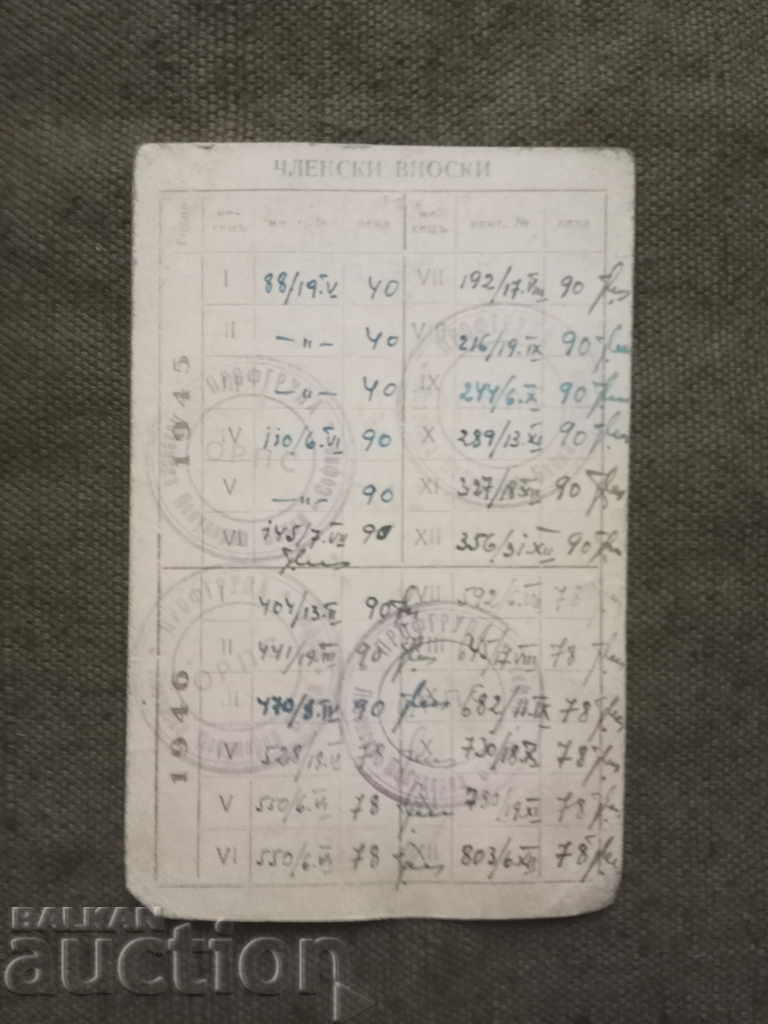 ЧЛЕНСКИ ВНОСКИ
месецъ лева месецъ конт. № лева
1945
I 88/19.V 40 VII 192/17.VIII 90
II —„— 40 VIII 216/19.IX 90
—„— 40 IX 244/6.X 90
IV 110/6.VI 90 X 289/13.XI 90
V —„— 90 XI 327/18.XII 90
VI 145/7.VII 90 XII 356/31.XII 90
1946
404/13.II 90 VII 592/6.VIII 78
II 441/19.III 90 VIII 645/7.VIII 78
470/8.IV 90 IX 682/11.IX 78
IV 528/18.V 78 X 730/18.X 78
V 550/6.VI 78 XI 780/19.XI 78
VI 550/6.VI 78 XII 803/6.XII 78
ПРОФГРУПА
ОРПС
София
ПРОФГРУПА
ОРПС
ПРОФГРУПА
BALKAN
auction